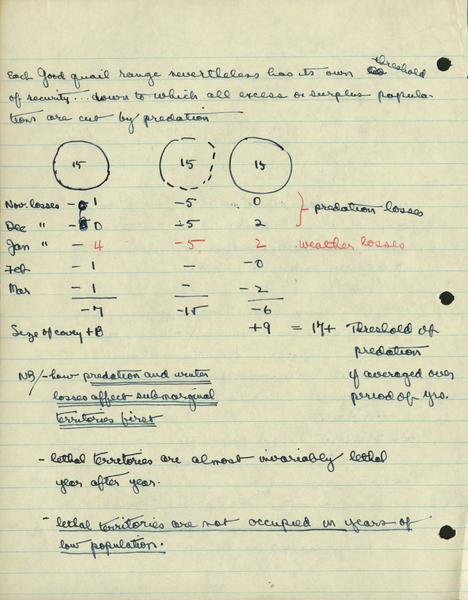 Each good quail range nevertheless has its own threshold
of security... down to which all excess or surplus popula-
tions are cut by predation
15 15 15
Nov. losses - 1 -5 0 predation losses
Dec " - 0 -5 2
Jan " - 4 -5 2 weather losses
Feb - 1 - -0
Mar - 1 - -2
-7 -15 -6
Size of covey +8 +9 = 17+ Threshold of
predation
if averaged over
period of yrs.
NB/-how predation and winter
losses affect submarginal
territories first
- lethal territories are almost invariably lethal
year after year.
- lethal territories are not occupied in years of
low population.